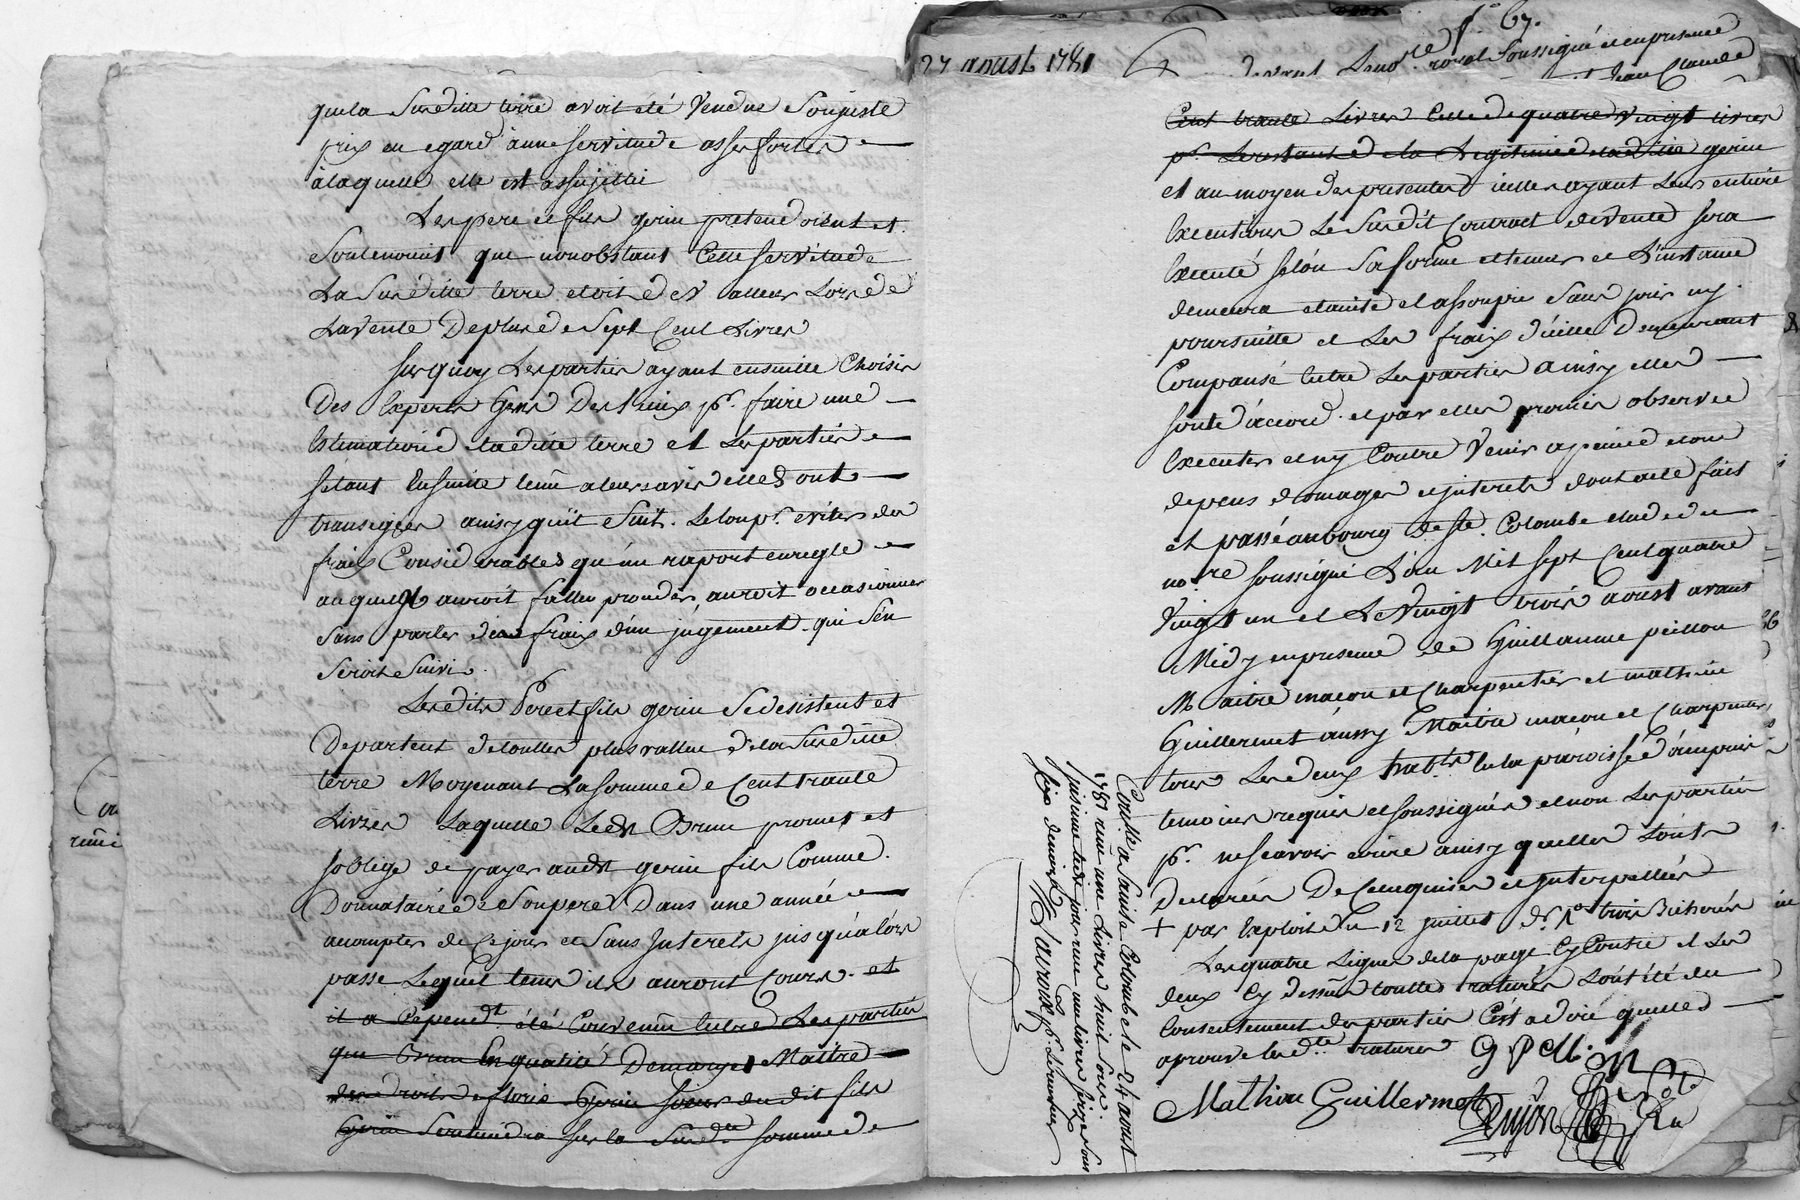 que la Susditte terre avoit été Vendue Son juste
prix eu egard a une servitude asses forte
a laquelle elle est assujettie
Les pere et fils gerin pretendoient et
Soutenoient que nonobstant Cette servitude
La Susditte terre etoit de valleur Lors de
La vente De plus de Sept Cent Livres
sur quoy Les parties ayant ensuitte Choisis
Des Experts Gens De lieux pr. faire une
Estimation de laditte terre et Les parties
sétant Ensuitte tenu a leurs avis elles ont
transigées ainsy quil Suit. Le tout pr. eviter des
frais Considerables qu'un raport en regle
auquel il auroit fallu proceder, auroit occasionner
Sans parler des frais d'un jugement qui s'en
Seroit Suivi
Lesdits Pere et fils gerin Se desistent et
Departent de toutte plus vallue de la Susditte
terre Moyenant La somme de Cent trante
Livres Laquelle Ledt Brun promet et
soblige de payer audt gerin fils Comme
Donnataire de Son pere Dans une année
a compter de Ce jour et Sans Interets jusqu'alors
passé Lequel tems ils auront Cours. et
il a Cepend.t été Convenu Entre Les parties
que Brun En qualité De mary et Maitre
des droits de
gerin Sur la Susd.te somme de
27 aoust 1781
f° 67.
Pardevant Le no.re royal Soussigné et en presence
Jean Claude
Cent trante Livres Celle de quatre Vingt livres
pr. Le restant de la Legitime de laditte gerin
et au moyen des presentes icelles ayant Leur entiere
Execution Le Susdit Contract de Vente sera
Executé selon Sa forme et teneur et L'instance
demeura eteinte et assoupie Sans frais ny
poursuitte et Les fraix d'icelle Demeurant
Compensé Entre Les parties ainsy elles
sont d'accord. et par elles promis observer
Executer et ny Contre Venir a peine de tous
depens domages et interets dont acte fait
et passé au bourg de Ste. Colombe etude de
no.re soussigné L'an Mil sept Cent quatre
Vingt un et Le Vingt trois aoust avant
Midy en presence de Guillaume peillon
Maitre maçon et Charpentier et mathieu
Guillermet aussy Maitre maçon et Charpentier
tous Les deux habts. en la paroisse d'
temoins requis et soussignés et non Les parties
pr. ne scavoir ecrire ainsy quelles L'ont
Declarées De Ce enquises et Interpellées
+ par Exploit du 12 juillet dr.
Les quatre Lignes de la page Cy Contre et Les
deux Cy dessus touttes raturées L'ont été du
Consentement des parties C'est a dire quelles
aprouve les d.te ratures G P
Mathieu Guillermet
Controllé a Sainte Colombe le 24 aoust
1781 reçu une Livre huit Sols
Six deniers